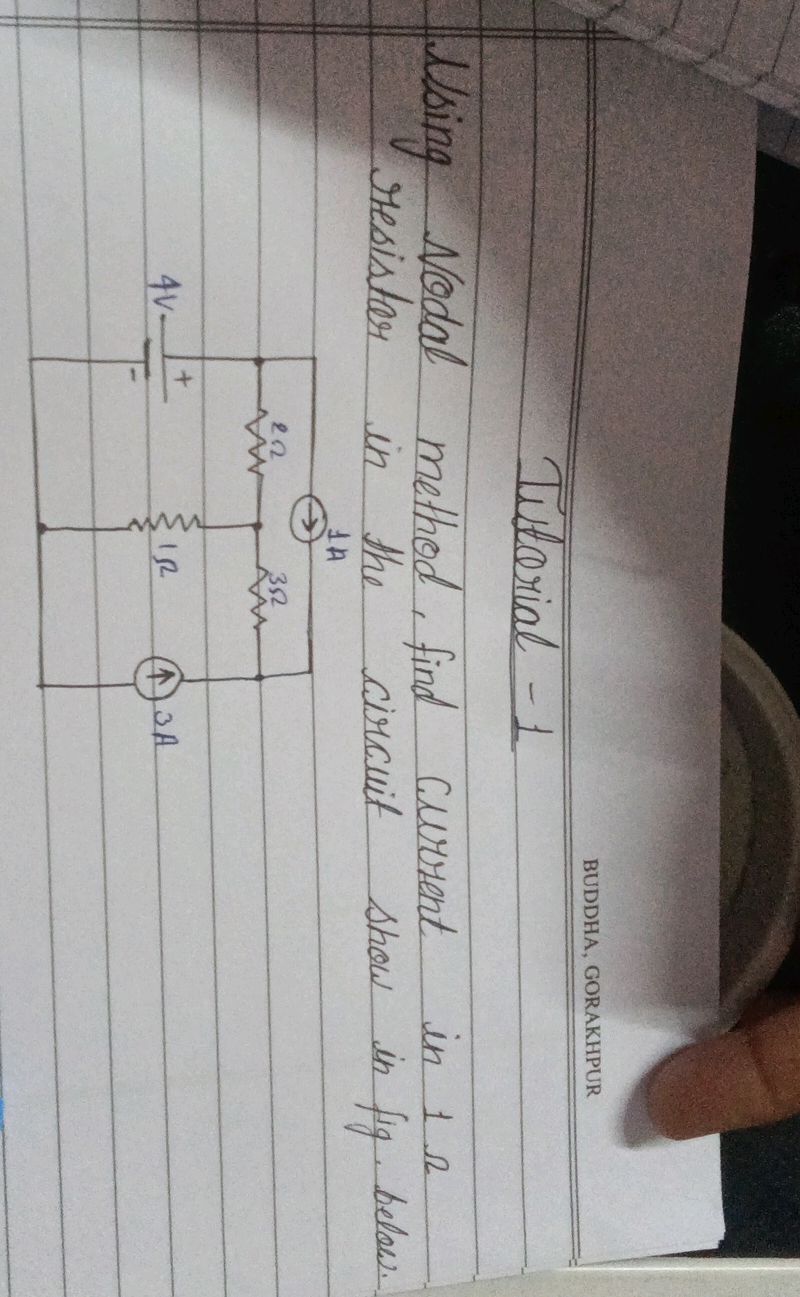 BUDDHA, GORAKHPUR
Tutorial - 1
Using Nodal method, find current in 1 Ω
resister in the circuit show in fig. below.
1A
2Ω
3Ω
4V
+
-
1Ω
3A